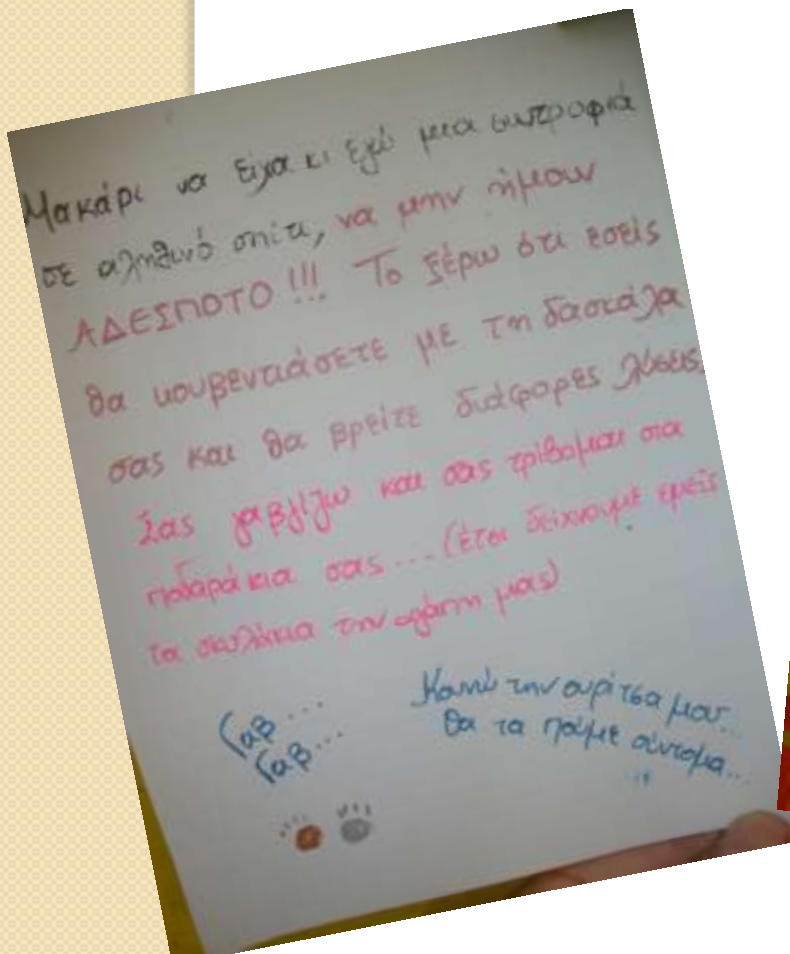 Μακάρι να είχα κι εγώ μια συντροφιά
σε αληθινό σπίτι, να μην ήμουν
ΑΔΕΣΠΟΤΟ!!! Το ξέρω ότι εσείς
θα κουβεντιάσετε με τη δασκάλα
σας και θα βρείτε διάφορες λύσεις.
Σας γαβγίζω και σας τρίβομαι στα
ποδαράκια σας... (έτσι δείχνουμε εμείς
τα σκυλάκια την αγάπη μας)
Γαβ...
Γαβ...
Κουνώ την ουρίτσα μου...
Θα τα πούμε σύντομα...